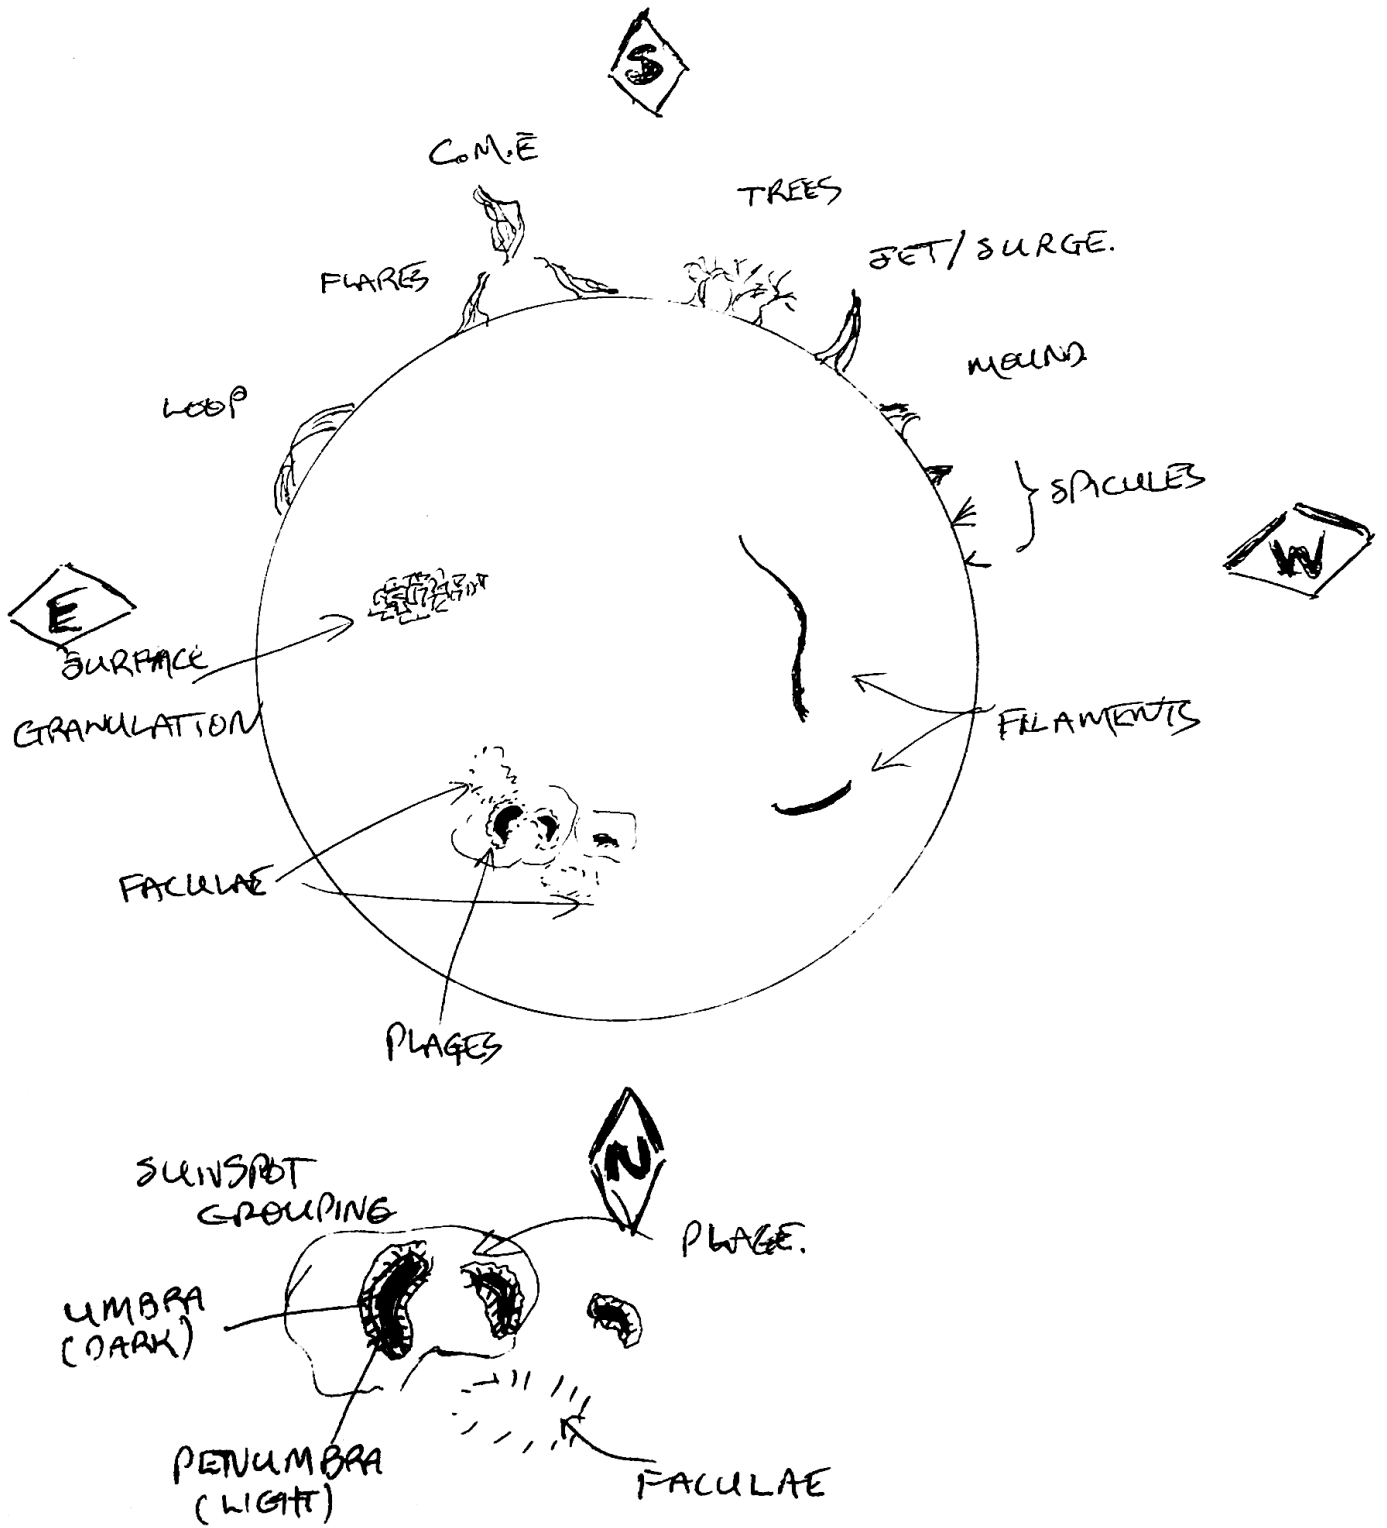 S
C.M.E
TREES
JET/SURGE.
FLARES
MOUND
LOOP
SPICULES
W
E
SURFACE
GRANULATION
FILAMENTS
FACULAE
PLAGES
N
SUNSPOT
GROUPING
PLAGE.
UMBRA
(DARK)
PENUMBRA
(LIGHT)
FACULAE